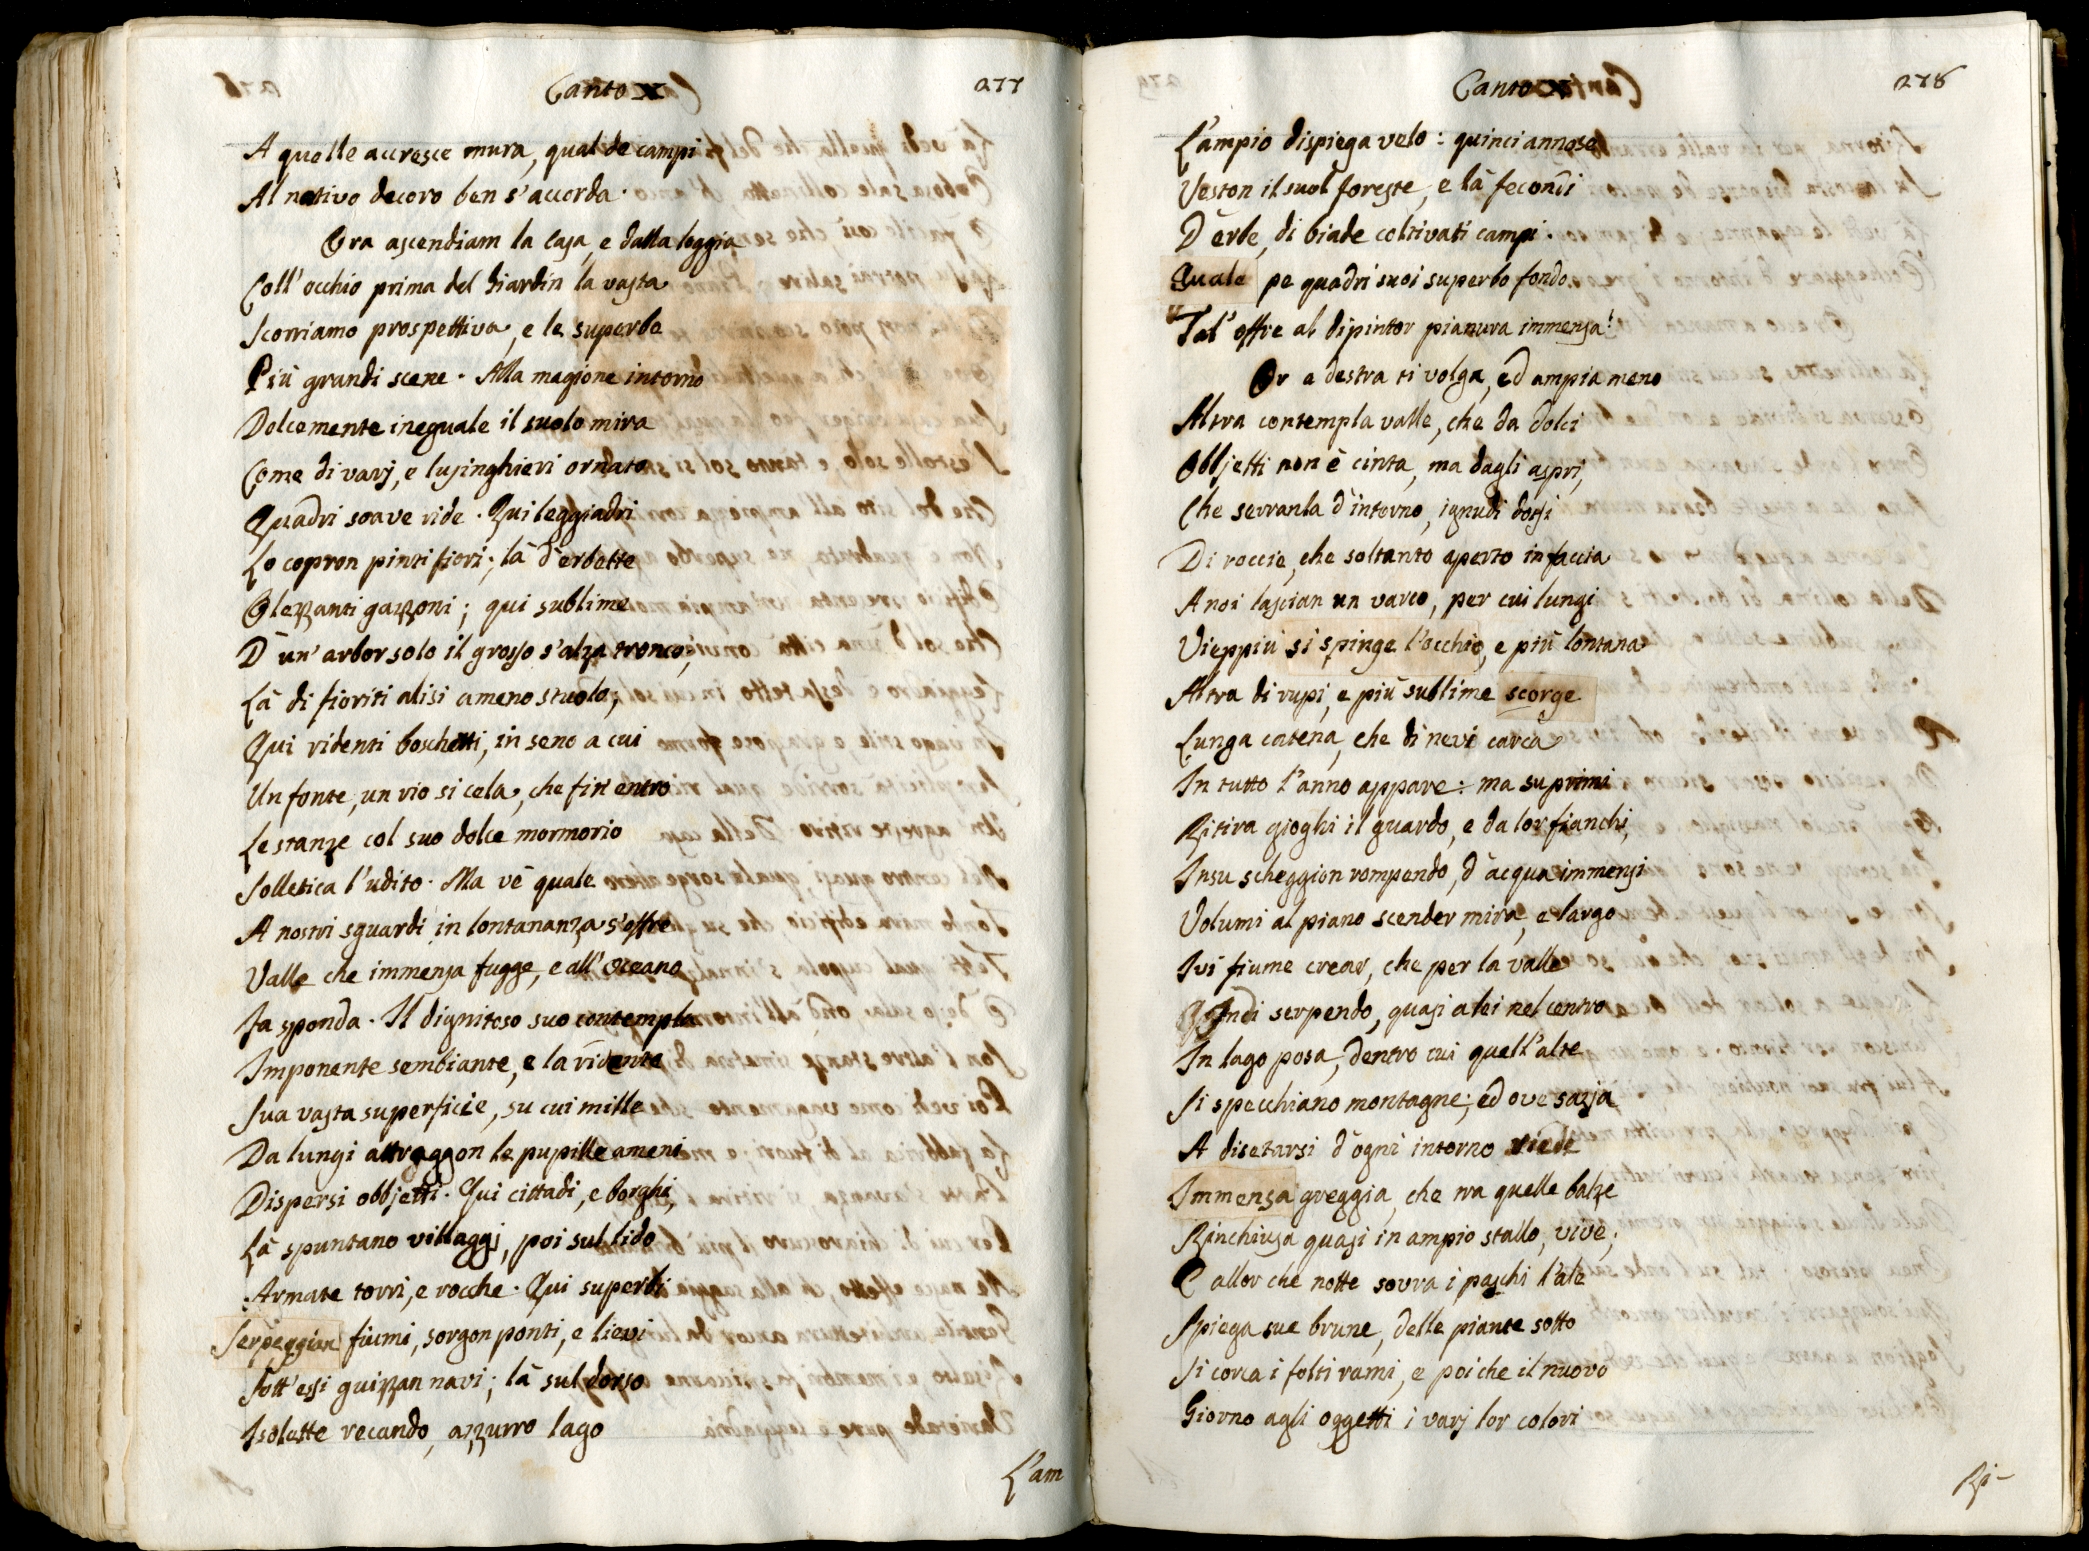 Canto X 277
A quelle accresce mura, qual de campi
Al nativo decoro ben s'accorda.
Ora ascendiam la casa, e dalla loggia
Coll'occhio prima del Giardin la vasta
Scorriamo prospettiva, e le superbe
Più grandi scene. Alla magione intorno
Dolcemente ineguale il suolo mira
Come di varj, e lusinghieri ornato
Quadri soave ride. Qui leggiadri
Lo copron pinti fiori; là d'erbette
Olezzanti gazzoni; qui sublime
D'un'arbor solo il grosso s'alza tronco,
Là di fioriti alisi ameno stuolo,
Qui ridenti boschetti, in seno a cui
Un fonte, un rio si cela, che fin entro
Le stanze col suo dolce mormorio
Solletica l'udito. Ma vè quale
A nostri sguardi in lontananza s'offre
Valle che immensa fugge, e all'Oceano
Fa sponda. Il dignitoso suo contempla
Imponente sembiante, e la ridente
Sua vasta superficie, su cui mille
Da lungi attraggon le pupille ameni
Dispersi obbjetti. Qui cittadi, e borghi,
Là spuntano villaggj, poi sul lido
Armate torri, e rocche. Qui superbi
Serpeggian fiumi, sorgon ponti, e lievi
Sott'essi guizzan navi; là sul dorso
Isolette recando, azzurro lago
L'am
Canto X 278
L'ampio dispiega velo: quinci annose
Veston il suol foreste, e là fecondi
D'erbe, di biade coltivati campi.
Quale pe quadri suoi superbo fondo
Tal'offre al dipintor pianura immensa!
Or a destra ti volga, ed ampia meno
Altra contempla valle, che da dolci
Obbjetti non è cinta, ma dagli aspri,
Che serranla d'intorno, ignudi dossi
Di roccie, che soltanto aperto in faccia
A noi lascian un varco, per cui lungi
Vieppiù si spinge l'occhio, e più lontana
Altra di rupi, e più sublime scorge
Lunga catena, che di nevi carca
In tutto l'anno appare: ma su primi
Ritira gioghi il guardo, e da lor fianchi,
Insu scheggion rompendo, d'acqua immensi
Volumi al piano scender mira, e largo
Ivi fiume crear, che per la valle
Indi serpendo, quasi a lei nel centro
In lago posa, dentro cui quell'alte
Si specchiano montagne; ed ove sazja
A disetarsi d'ogni intorno riede
Immensa greggia, che tra quelle balze
Rinchiusa quasi in ampio stallo, vive;
E allor che notte sovra i paschi l'ale
Spiega sue brune, delle piante sotto
Si corca i folti rami, e poi che il nuovo
Giorno agli oggetti i varj lor colori
Ri-